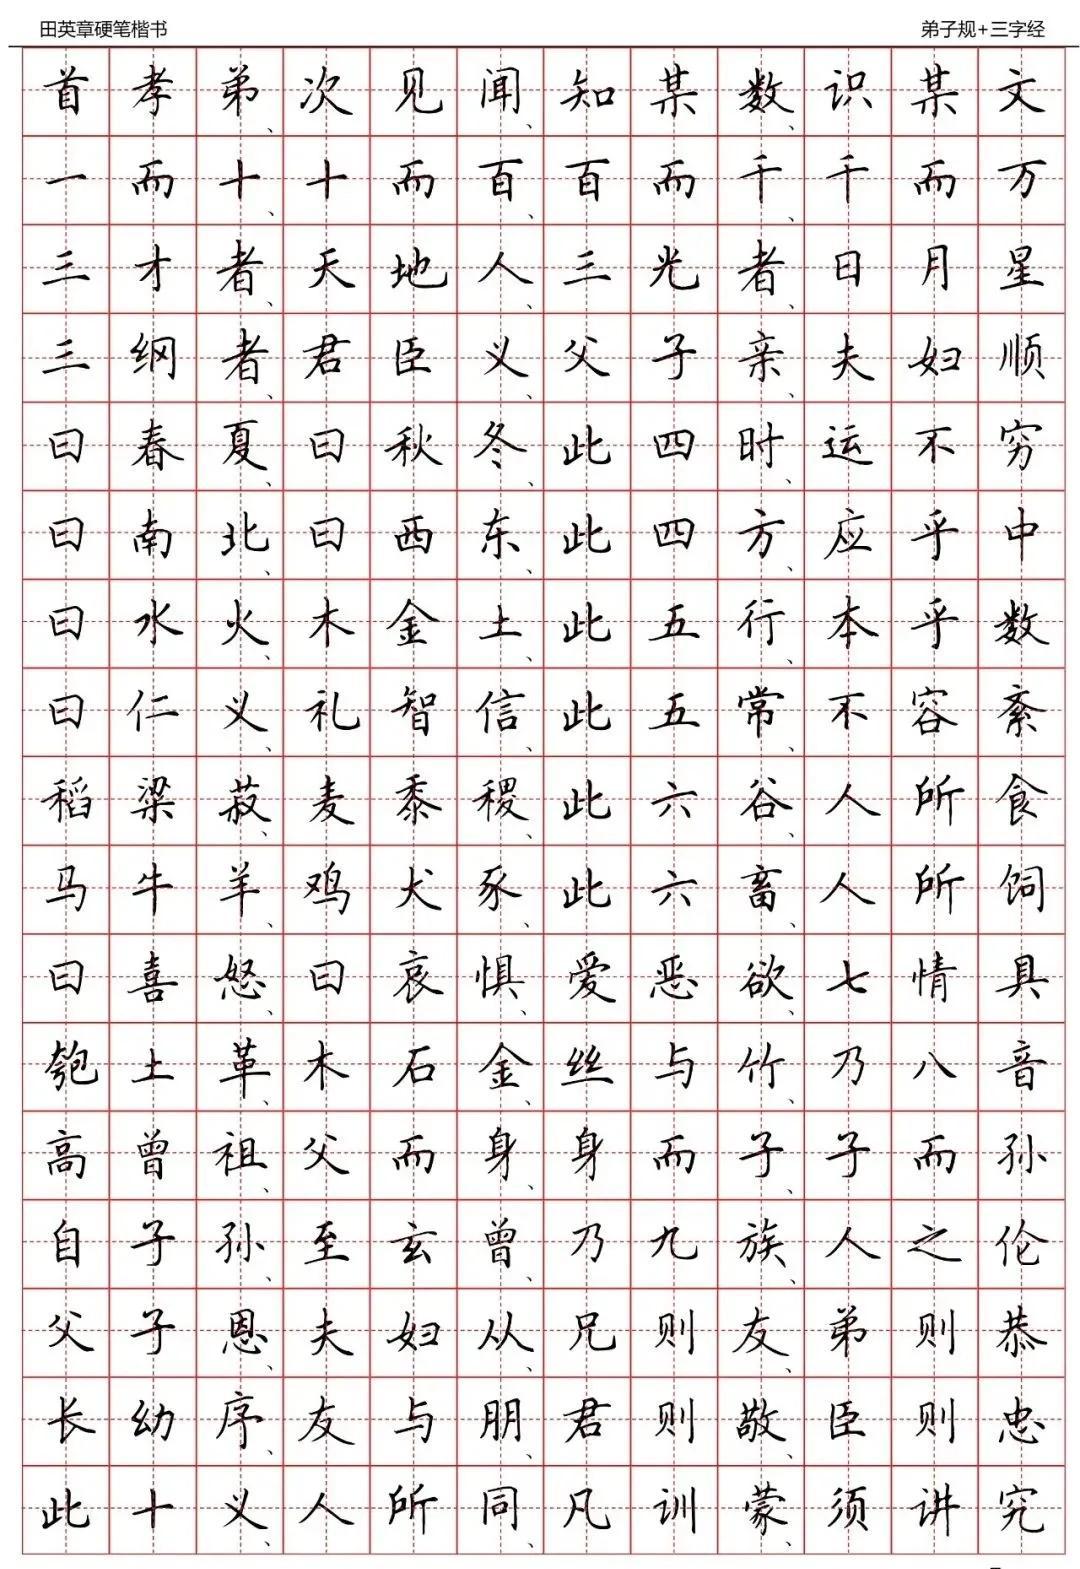 田英章硬笔楷书 弟子规+三字经
首孝弟、次见闻、知某数、识某文
一而十、十而百、百而千、千而万
三才者、天地人、三光者、日月星
三纲者、君臣义、父子亲、夫妇顺
曰春夏、曰秋冬、此四时、运不穷
曰南北、曰西东、此四方、应乎中
曰水火、木金土、此五行、本乎数
曰仁义、礼智信、此五常、不容紊
稻粱菽、麦黍稷、此六谷、人所食
马牛羊、鸡犬豕、此六畜、人所饲
曰喜怒、曰哀惧、爱恶欲、七情具
匏土革、木石金、丝与竹、乃八音
高曾祖、父而身、身而子、子而孙
自子孙、至玄曾、乃九族、人之伦
父子恩、夫妇从、兄则友、弟则恭
长幼序、友与朋、君则敬、臣则忠
此十义、人所同、凡训蒙、须讲究